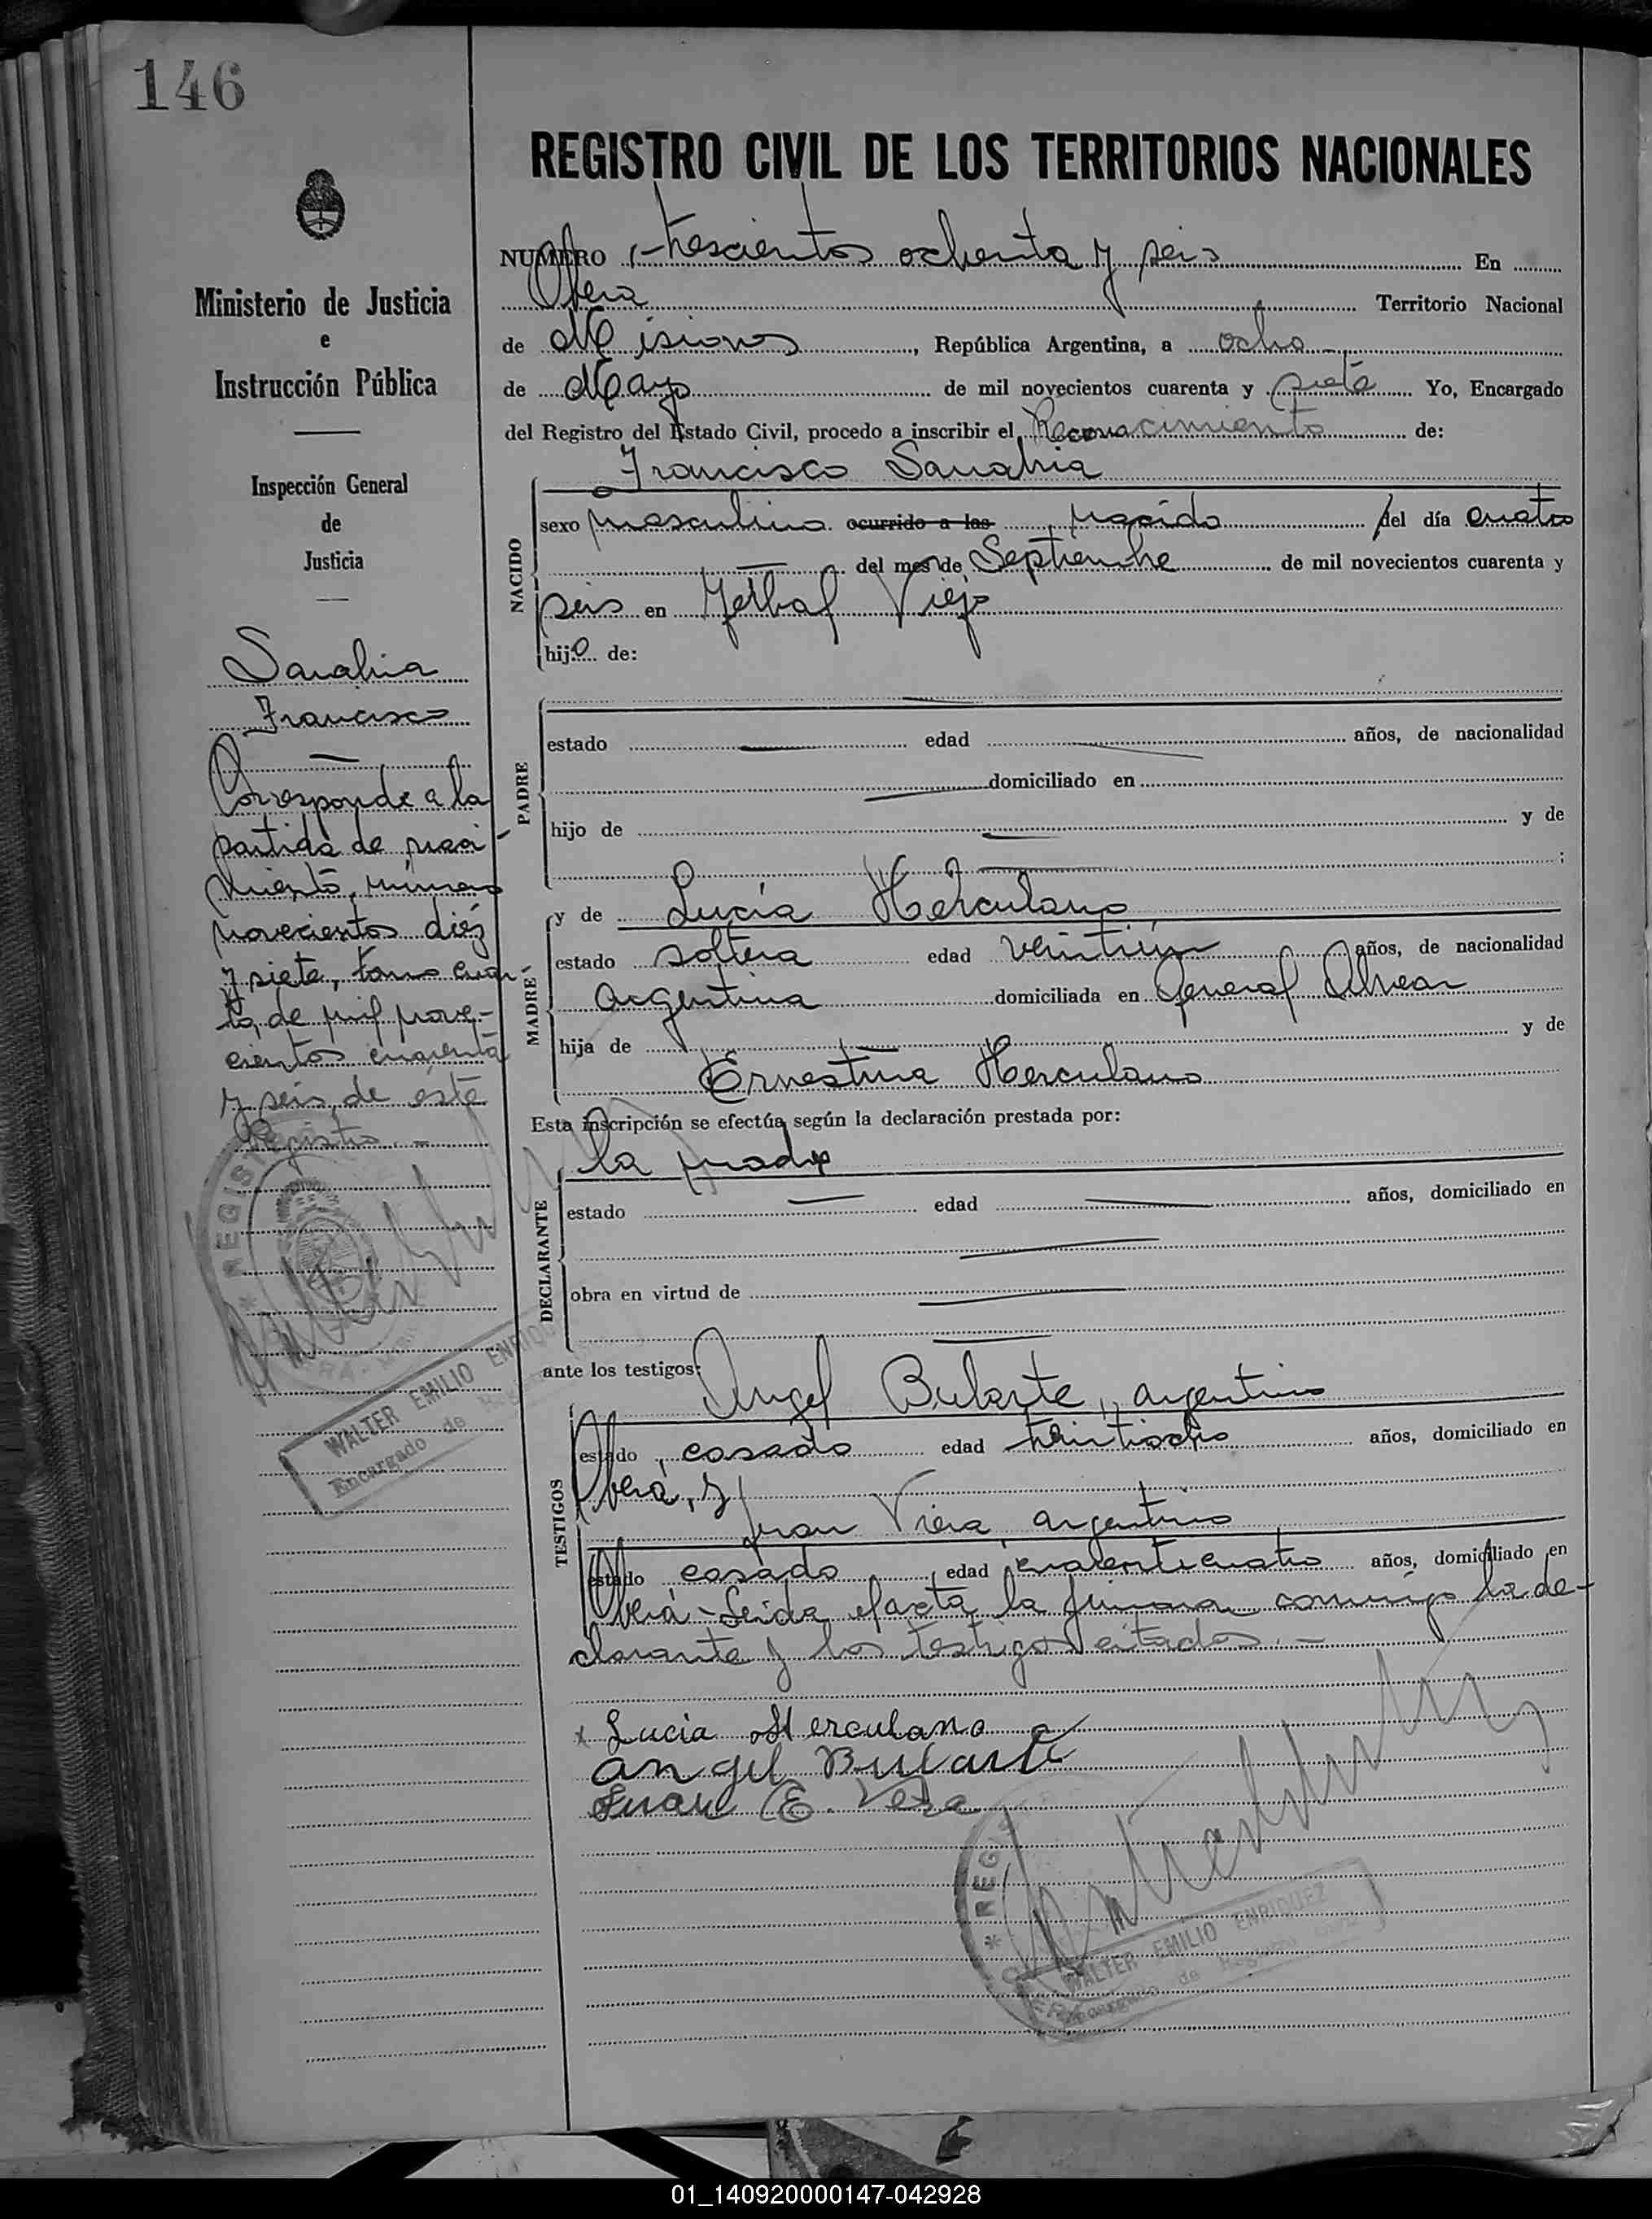 146
REGISTRO CIVIL DE LOS TERRITORIOS NACIONALES
Ministerio de Justicia
e
Instrucción Pública
Inspección General
de
Justicia
Sanabria
Francisco
Corresponde a la
partida de naci-
miento, número
novecientos diez
y siete, tomo cuar-
to, de mil nove-
cientos cuarenta
y seis, de éste
Registro. -
WALTER EMILIO ENRIQUEZ
Encargado de
NUMERO trescientos ochenta y seis En
Oberá Territorio Nacional
de Misiones, República Argentina, a ocho
de Mayo de mil novecientos cuarenta y siete Yo, Encargado
del Registro del Estado Civil, procedo a inscribir el Reconocimiento de:
Francisco Sanabria
NACIDO
sexo masculino ocurrido a las nacido del día cuatro
del mes de Septiembre de mil novecientos cuarenta y
seis en Yerbal Viejo
hijo de:
PADRE
estado edad años, de nacionalidad
domiciliado en
hijo de y de
;
MADRE
y de Lucía Herculano
estado soltera edad veintiún años, de nacionalidad
argentina domiciliada en General Alvear
hija de y de
Ernestina Herculano
Esta inscripción se efectúa según la declaración prestada por:
la madre
DECLARANTE
estado edad años, domiciliado en
obra en virtud de
ante los testigos: Angel Bularte, argentino
TESTIGOS
estado casado edad años, domiciliado en
Oberá, y
Juan Viera argentino
estado casado edad cuarenticuatro años, domiciliado en
Oberá - Leida el acta, la firman conmigo la de-
clarante y los testigos citados. -
x Lucia Herculano
Angel Bularte
Juan E. Vera
REGIS
WALTER EMILIO ENRIQUEZ
Encargado de Registro Civil
01_140920000147-042928